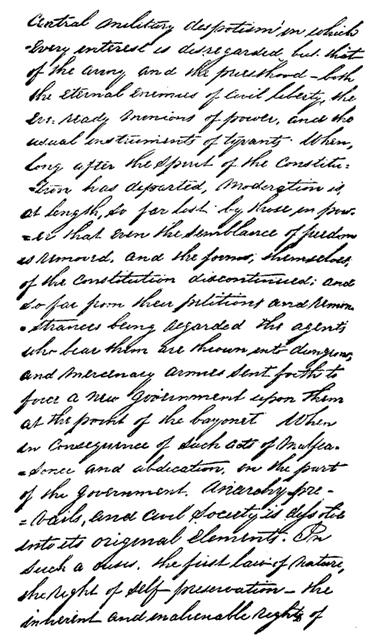 Central military despotism in which
=every interest is disregarded but that
of the army and the priesthood – both
the eternal enemies of civil liberty, the
ever ready minions of power, and the
usual instruments of tyrants. When,
long after the Spirit of the Constitu=
=tion has departed, Moderation is,
at length, so far lost by those in pow=
=er that even the semblance of freedom
is removed, and the forms, themselves,
of the Constitution discontinued; and
so far from their petitions and remon=
=strances being regarded the agents
who bear them are thrown into dungeons,
and mercenary armies sent forth to
force a new government upon them
at the point of the bayonet When
in Consequence of such acts of malfea=
=sance and abdication, on the part
of the government, Anarchy pre=
=vails, and Civil Society is dissolved
into its original elements. In
such a crisis, the first law of nature,
the right of self preservation – the
inherent and inalienable right of